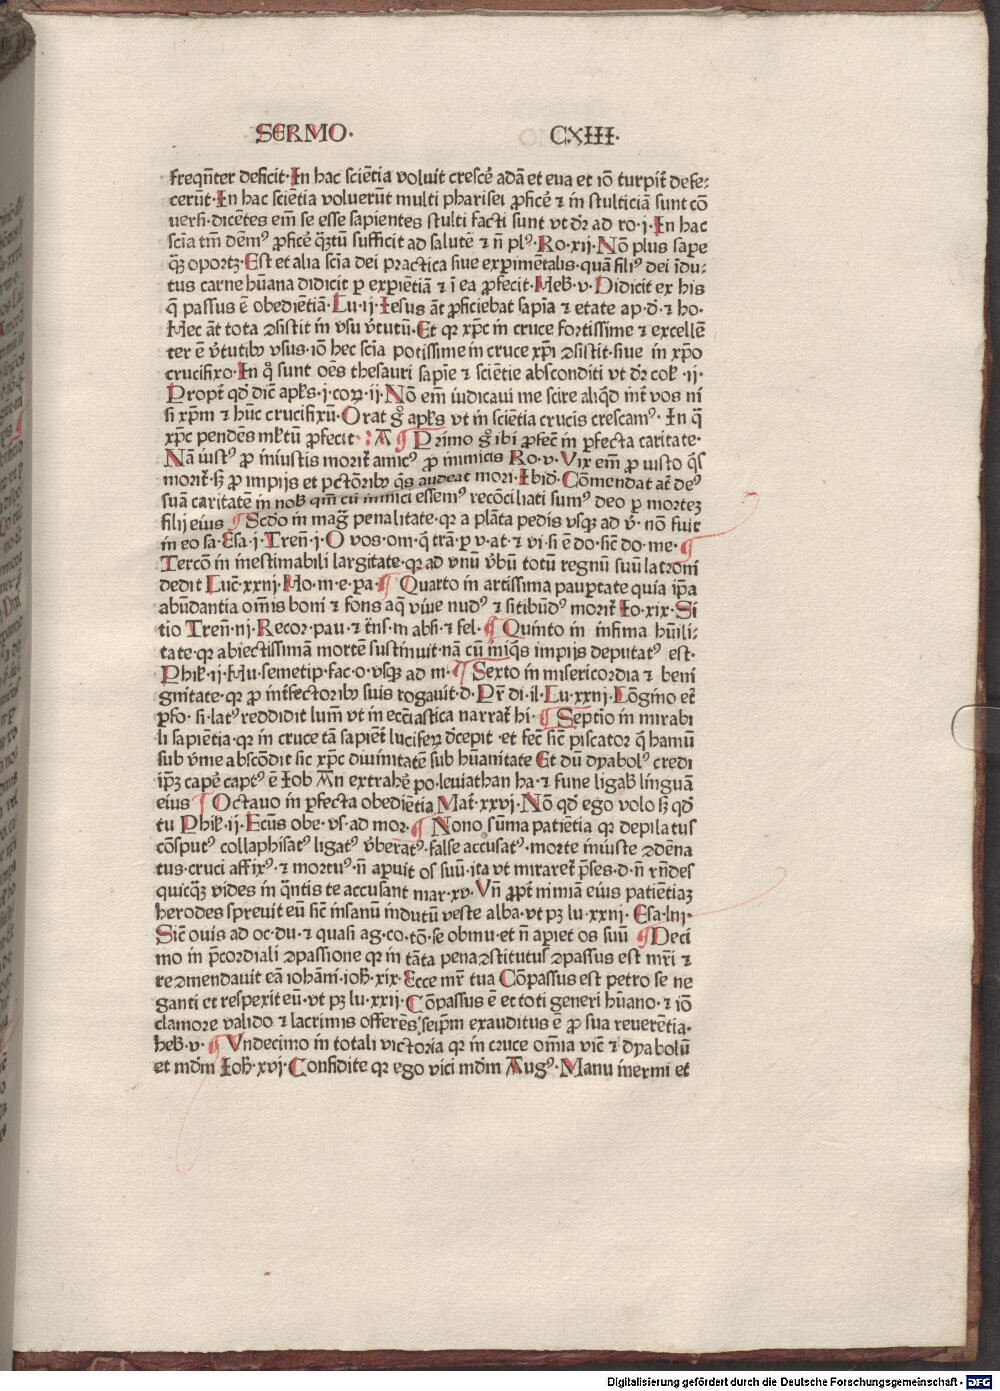 SERMO· CXIII·
freqn̄ter deficit·In hac sciētia voluit cresce᷑ adā et eua et iō turpit᷑ defe:
cerūt·In hac sciētia voluerūt multi pharisei ꝓfice᷑ ⁊ in stulticiā sunt cō
uersi·dicētes em̄ se esse sapientes stulti facti sunt vt dr̄ ad ro·j·In hac
scīa tm̄ dēmꝰ ꝓfice᷑ qꝫtū sufficit ad salutē ⁊ n̄ plꝰ·Ro·xij·Nō plus sape
qꝫ oportꝫ·Est et alia scīa dei practica siue exꝑimētalis·quā filiꝰ dei īdu:
tus carne hūana didicit ꝑ exꝑiētiā ⁊ ī ea ꝓfecit·Heb᷑·v·Didicit ex his
q̄ passus ē obediētiā·Lu·ij·Iesus āt ꝓficiebat sapīa ⁊ etate ap·d·⁊ ho·
Hec āt tota ꝯsistit in vsu v᷑tutū·Et qꝛ xp̄c in cruce fortissime ⁊ excellē
ter ē v᷑tutibꝫ vsus·iō hec scīa potissime in cruce xp̄i ꝯsistit·siue in xp̄o
crucifixo·In q̄ sunt oēs thesauri sapīe ⁊ sciētie absconditi vt dr̄ col᷑·ij·
Propt᷑ qd̄ dic̄ apl᷑s·j·coꝝ·ij·Nō em̄ iudicaui me scire aliqd̄ int᷑ vos ni
si xp̄m ⁊ hūc crucifixū·Orat g̊ apl᷑s vt in sciētia crucis crescamꝰ·In q̄
xp̄c pendēs ml᷑tū ꝓfecit·:A ¶ Primo g̊ ibi ꝓfec̄ in ꝑfecta caritate·
Nā iustꝰ ꝓ iniustis morit᷑ amicꝰ ꝓ inimicis Ro·v·Vix em̄ ꝓ iusto q̄s
morit᷑·sꝫ ꝓ impijs et pctōribꝫ q̄s audeat mori·Ibid᷑·Cōmendat at᷑ deꝰ
suā caritatē in nob᷑ qm̄ cū inimici essemꝰ recōciliati sumꝰ deo ꝑ mortez
filij eius ¶ Scd̄o in mag̃ penalitate·qꝛ a plāta pedis vsqꝫ ad v᷑·nō fuit
in eo sa·Esa·j·Tren̄·j·O vos·om·q̄ trā·ꝑ v·at·⁊ vi·si ē do·sic̄ do·me·¶
Tercō in inestimabili largitate·qꝛ ad vnū v᷑bū totū regnū suū latroni
dedit Luc̄·xxnj·Ho·m·e·pa·¶ Quarto in artissima pauꝑtate quia ip̄a
abūdantia om̄is boni ⁊ fons aq̄ viue nudꝰ ⁊ sitibūdꝰ morit᷑ Io·xix·Si
tio Tren̄·nj·Recor·pau·⁊ tn̄s·m absi·⁊ fel·¶ Quinto in infima hūili:
tate·qꝛ abiectissimā mortē sustinuit·nā cū iniq̄s impijs deputatꝰ est·
Phil᷑·ij·Hu·semetip·fac·o·vsqꝫ ad m·¶ Sexto in misericordia ⁊ beni
gnitate·qꝛ ꝓ int᷑fectoribꝫ suis rogauit·d·Pr̄ di·il·Lu·xxnj·Lōgino et᷑
ꝑfo·si·latꝰ reddidit lum̄ vt in ecc̄iastica narrat᷑ hi·¶ Septīo in mirabi
li sapiētia·qꝛ in cruce tā sapiēt᷑ luciferꝫ d̄cepit·et fec̄ sic̄ piscator q̄ hamū
sub v᷑me abscōdit sic xp̄c diuinitatē sub hūanitate Et dū dyabolꝰ credi
ip̄ꝫ cape᷑ captꝰ ē Iob An̄ extrahe᷑ po·leuiathan ha·⁊ fune ligab᷑ linguā
eius ¶ Octauo in ꝑfecta obediētia Mat᷑·xxvj·Nō qd̄ ego volo sꝫ qd̄
tu Phil᷑·ij·Ecūs obe·vs·ad mor·¶ Nono sūma patiētia qꝛ depilatus
cōsputꝰ collaphisatꝰ ligatꝰ v᷑beratꝰ·false accusatꝰ·morte iniuste ꝯdēna
tus·cruci affixꝰ·⁊ mortuꝰ·n̄ apuit os suū·ita vt miraret᷑ p̄ses·d·n̄ rn̄des
quicqꝫ vides in q̄ntis te accusant mar·xv·Vn̄ ꝓpt᷑ nimiā eius patiētiaꝫ
herodes spreuit eū sic̄ insanū indutū veste alba·vt pꝫ lu·xxnj·Esa·lnj·
Sic̄ ouis ad oc·du·⁊ quasi ag·co·tō·se obmu·et n̄ aꝑiet os suū ¶ Deci
mo in p̄cordiali ꝯpassione qꝛ in tāta pena ꝯstitutus ꝯpassus est mr̄i ⁊
reꝯmendauit eā iohāni·ioh᷑·xix·Ecce mr̄ tua Cōpassus est petro se ne
ganti et respexit eū·vt pꝫ lu·xxij·Cōpassus ē et toti generi hūano·⁊ iō
clamore valido ⁊ lacrimis offerēs seip̄m exauditus ē ꝓ sua reuerētia·
heb᷑·v·¶ Vndecimo in totali victoria qꝛ in cruce om̄ia vic̄ ⁊ dyabolū
et md̄m Ioh᷑·xvj·Confidite qꝛ ego vici mūdm Augꝰ·Manu inermi et
Digitalisierung gefördert durch die Deutsche Forschungsgemeinschaft - DFG